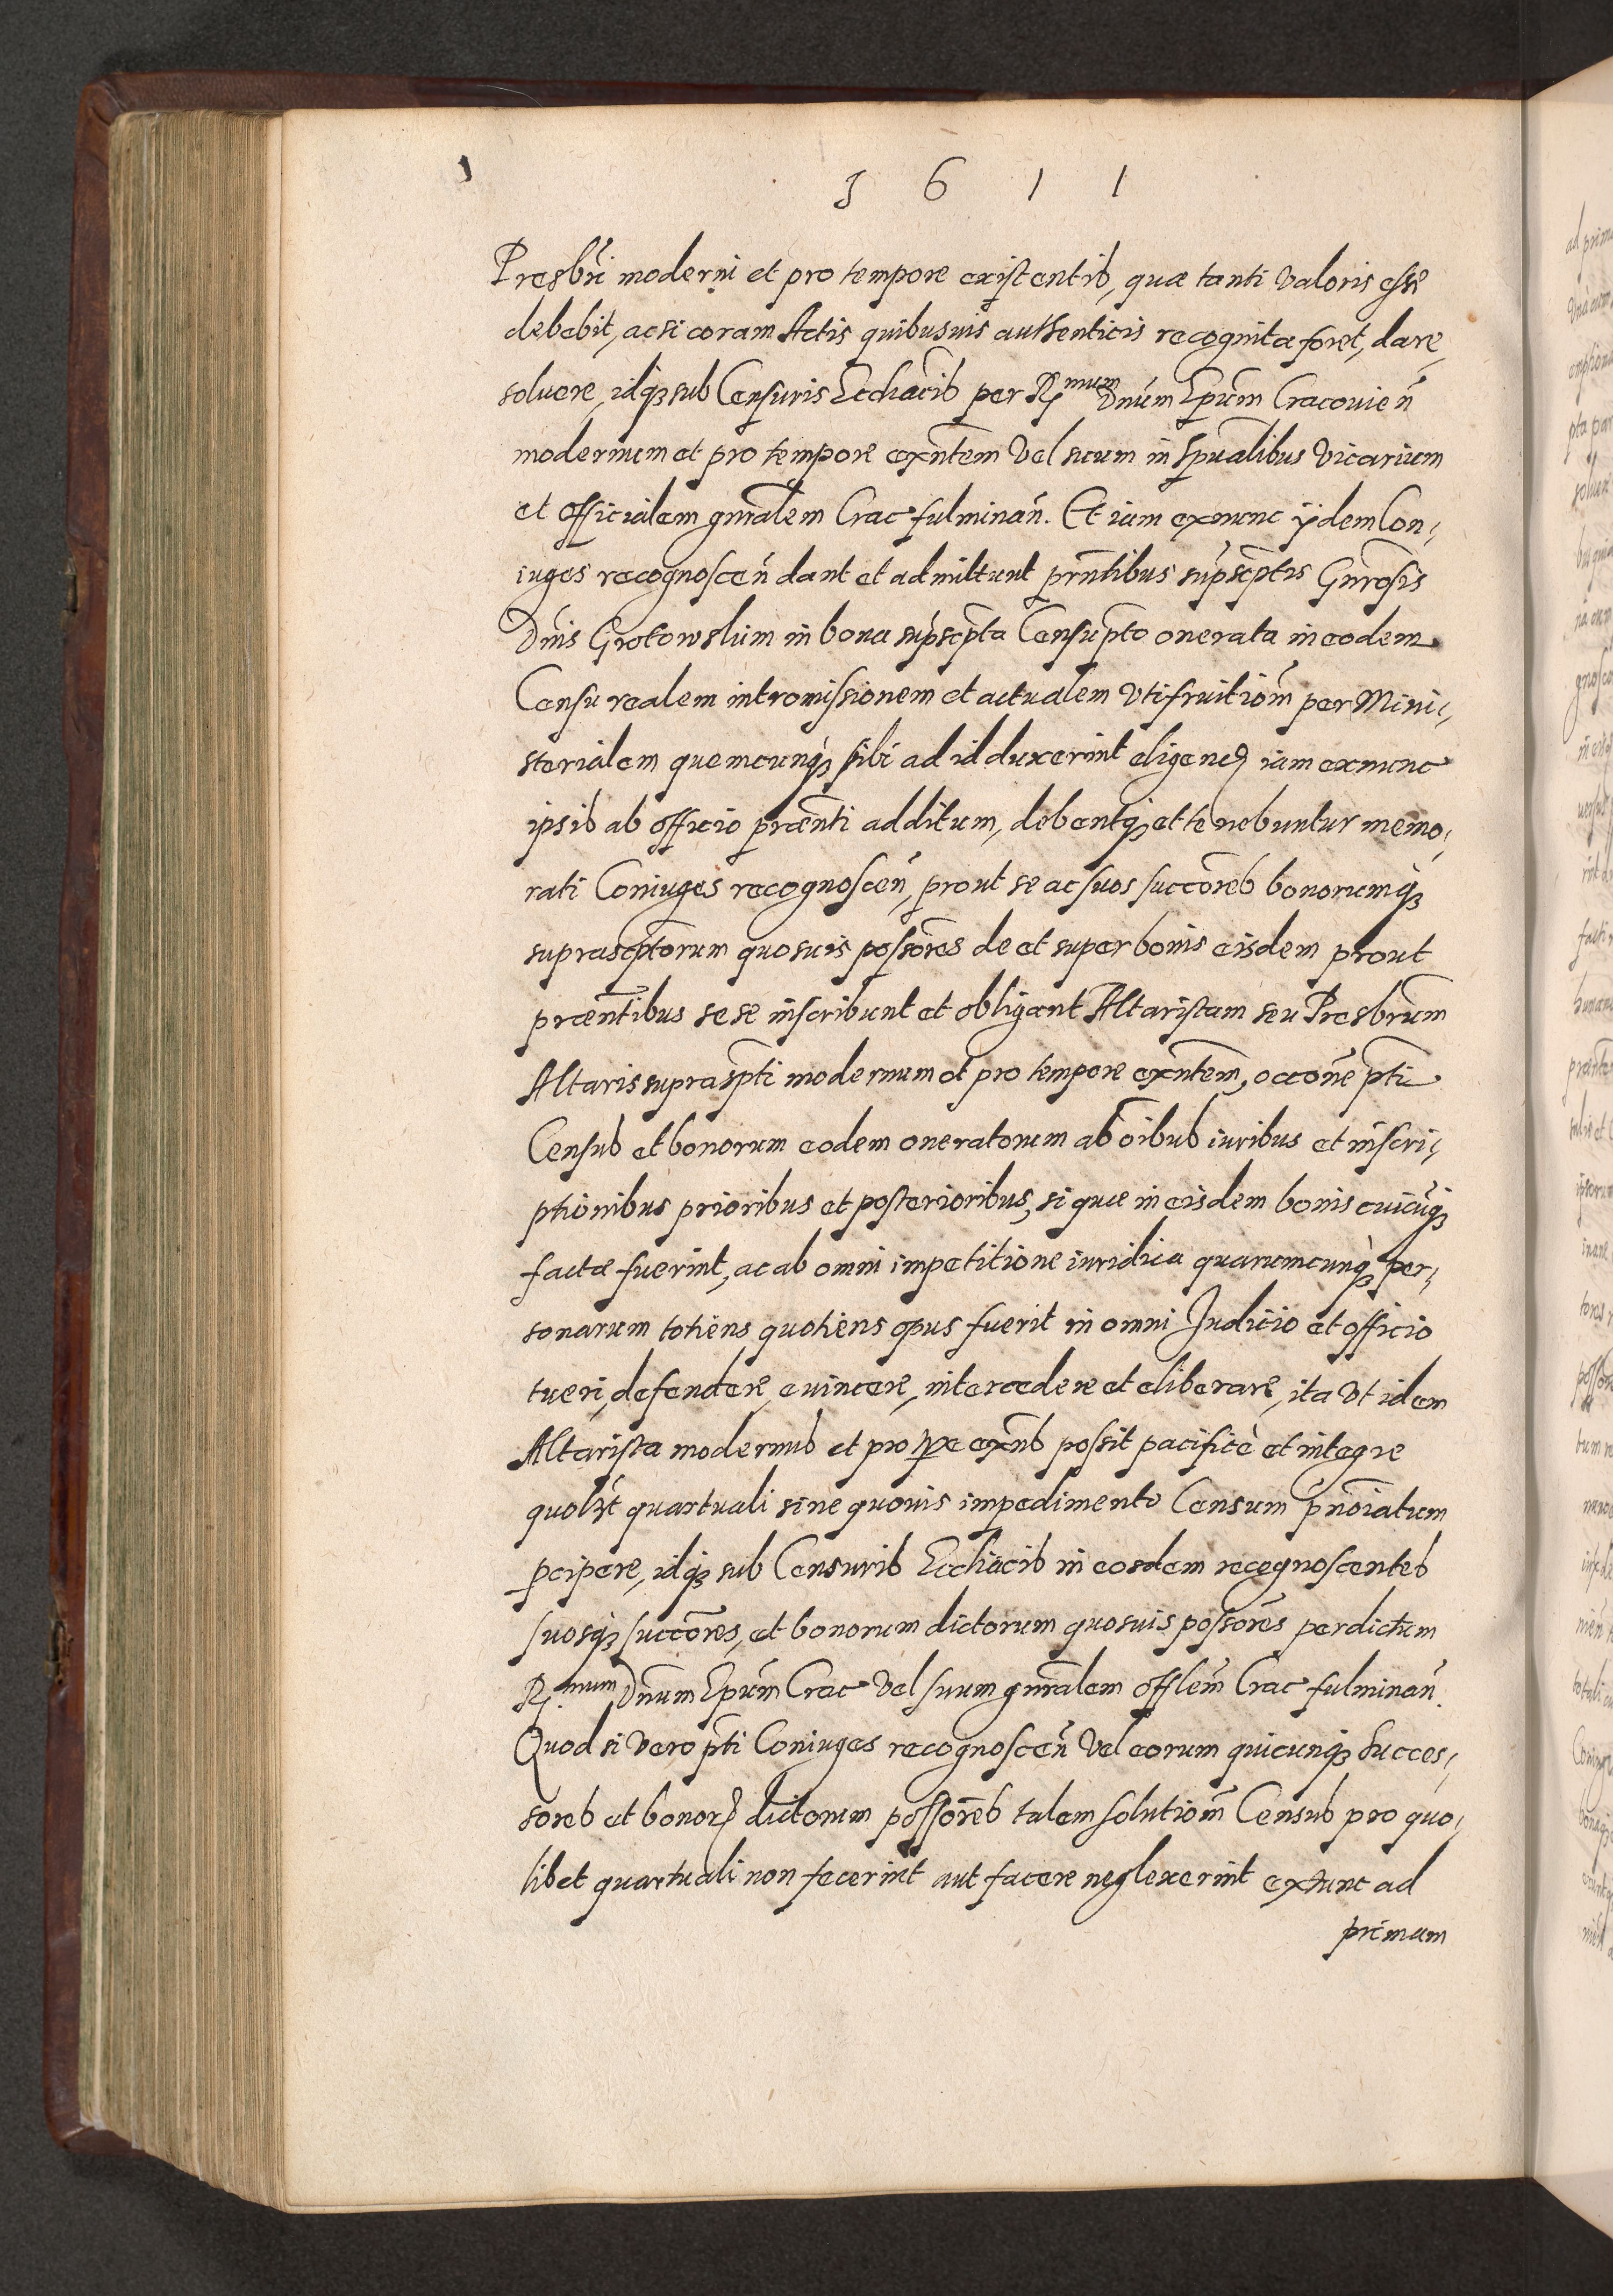 1611
Presbri moderni et pro tempore existentis, quæ tanti valoris esse
debebit, acsi coram Actis quibusuis authenticis recognita foret, dare,
soluere, idq3 sub Censuris Eccliacis per R.mum Dnum Epum Cracouien
modernum et pro tempore exntem vel suum in spualibus vicarium
et officialem gnralem Crac fulminan. Et iam exnunc ijdem Con-
iuges recognoscen dant et admittunt prntibus supscptis Gnrosis
Dnis Grotowskim in bona supscpta Censu pto onerata in eodem
Censu realem intromissionem et actualem vtifruitiom per Mini-
sterialem quemcunq3 sibi ad id duxerint eligend iam exnunc
ipsis ab officio præenti additum, debentq3 et tenebuntur memo-
rati Coniuges recognoscen, prout se ac suos succores bonorumq3
suprascptorum quosuis possores de et super bonis eisdem prout
præentibus sese inscribunt et obligant Altaristam seu Presbrum
Altaris suprascpti modernum et pro tempore exntem, occone pti
Census et bonorum eodem oneratorum ab oibus iuribus et inscri-
ptionibus prioribus et posterioribus, si quæ in eisdem bonis cuicuq3
factæ fuerint, ac ab omni impetitione iuridica quarumcunq3 per-
sonarum totiens quotiens opus fuerit in omni Judicio et officio
tueri, defendere, euincere, intercedere et eliberare, ita vt idem
Altarista modernus et pro tpe exns possit pacificè et integre
quolzt quartuali sine quouis impedimento Censum pnoiatum
pcipere, idq3 sub Censuris Eccliacis in eosdem recognoscentes
suosq3 succores, et bonorum dictorum quosuis possores per dictum
R.mum Dnum Epum Crac vel suum gnralem offlem Crac fulminan.
Quod si vero pti Coniuges recognoscen vel eorum quicunq3 succes-
sores et bonor dictorum possores talem solutiom Census pro quo-
libet quartuali non fecerint aut facere neglexerint extunc ad
primum